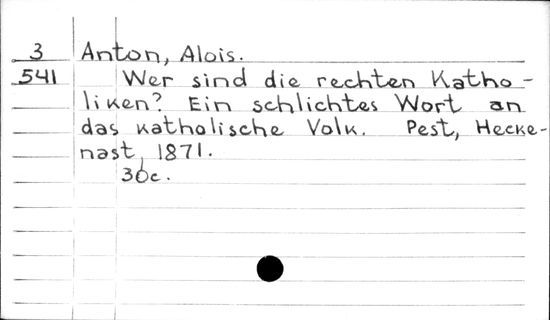 3 Anton, Alois.
541 Wer sind die rechten Katho-
liken? Ein schlichtes Wort an
das katholische Volk. Pest, Hecke-
nast, 1871.